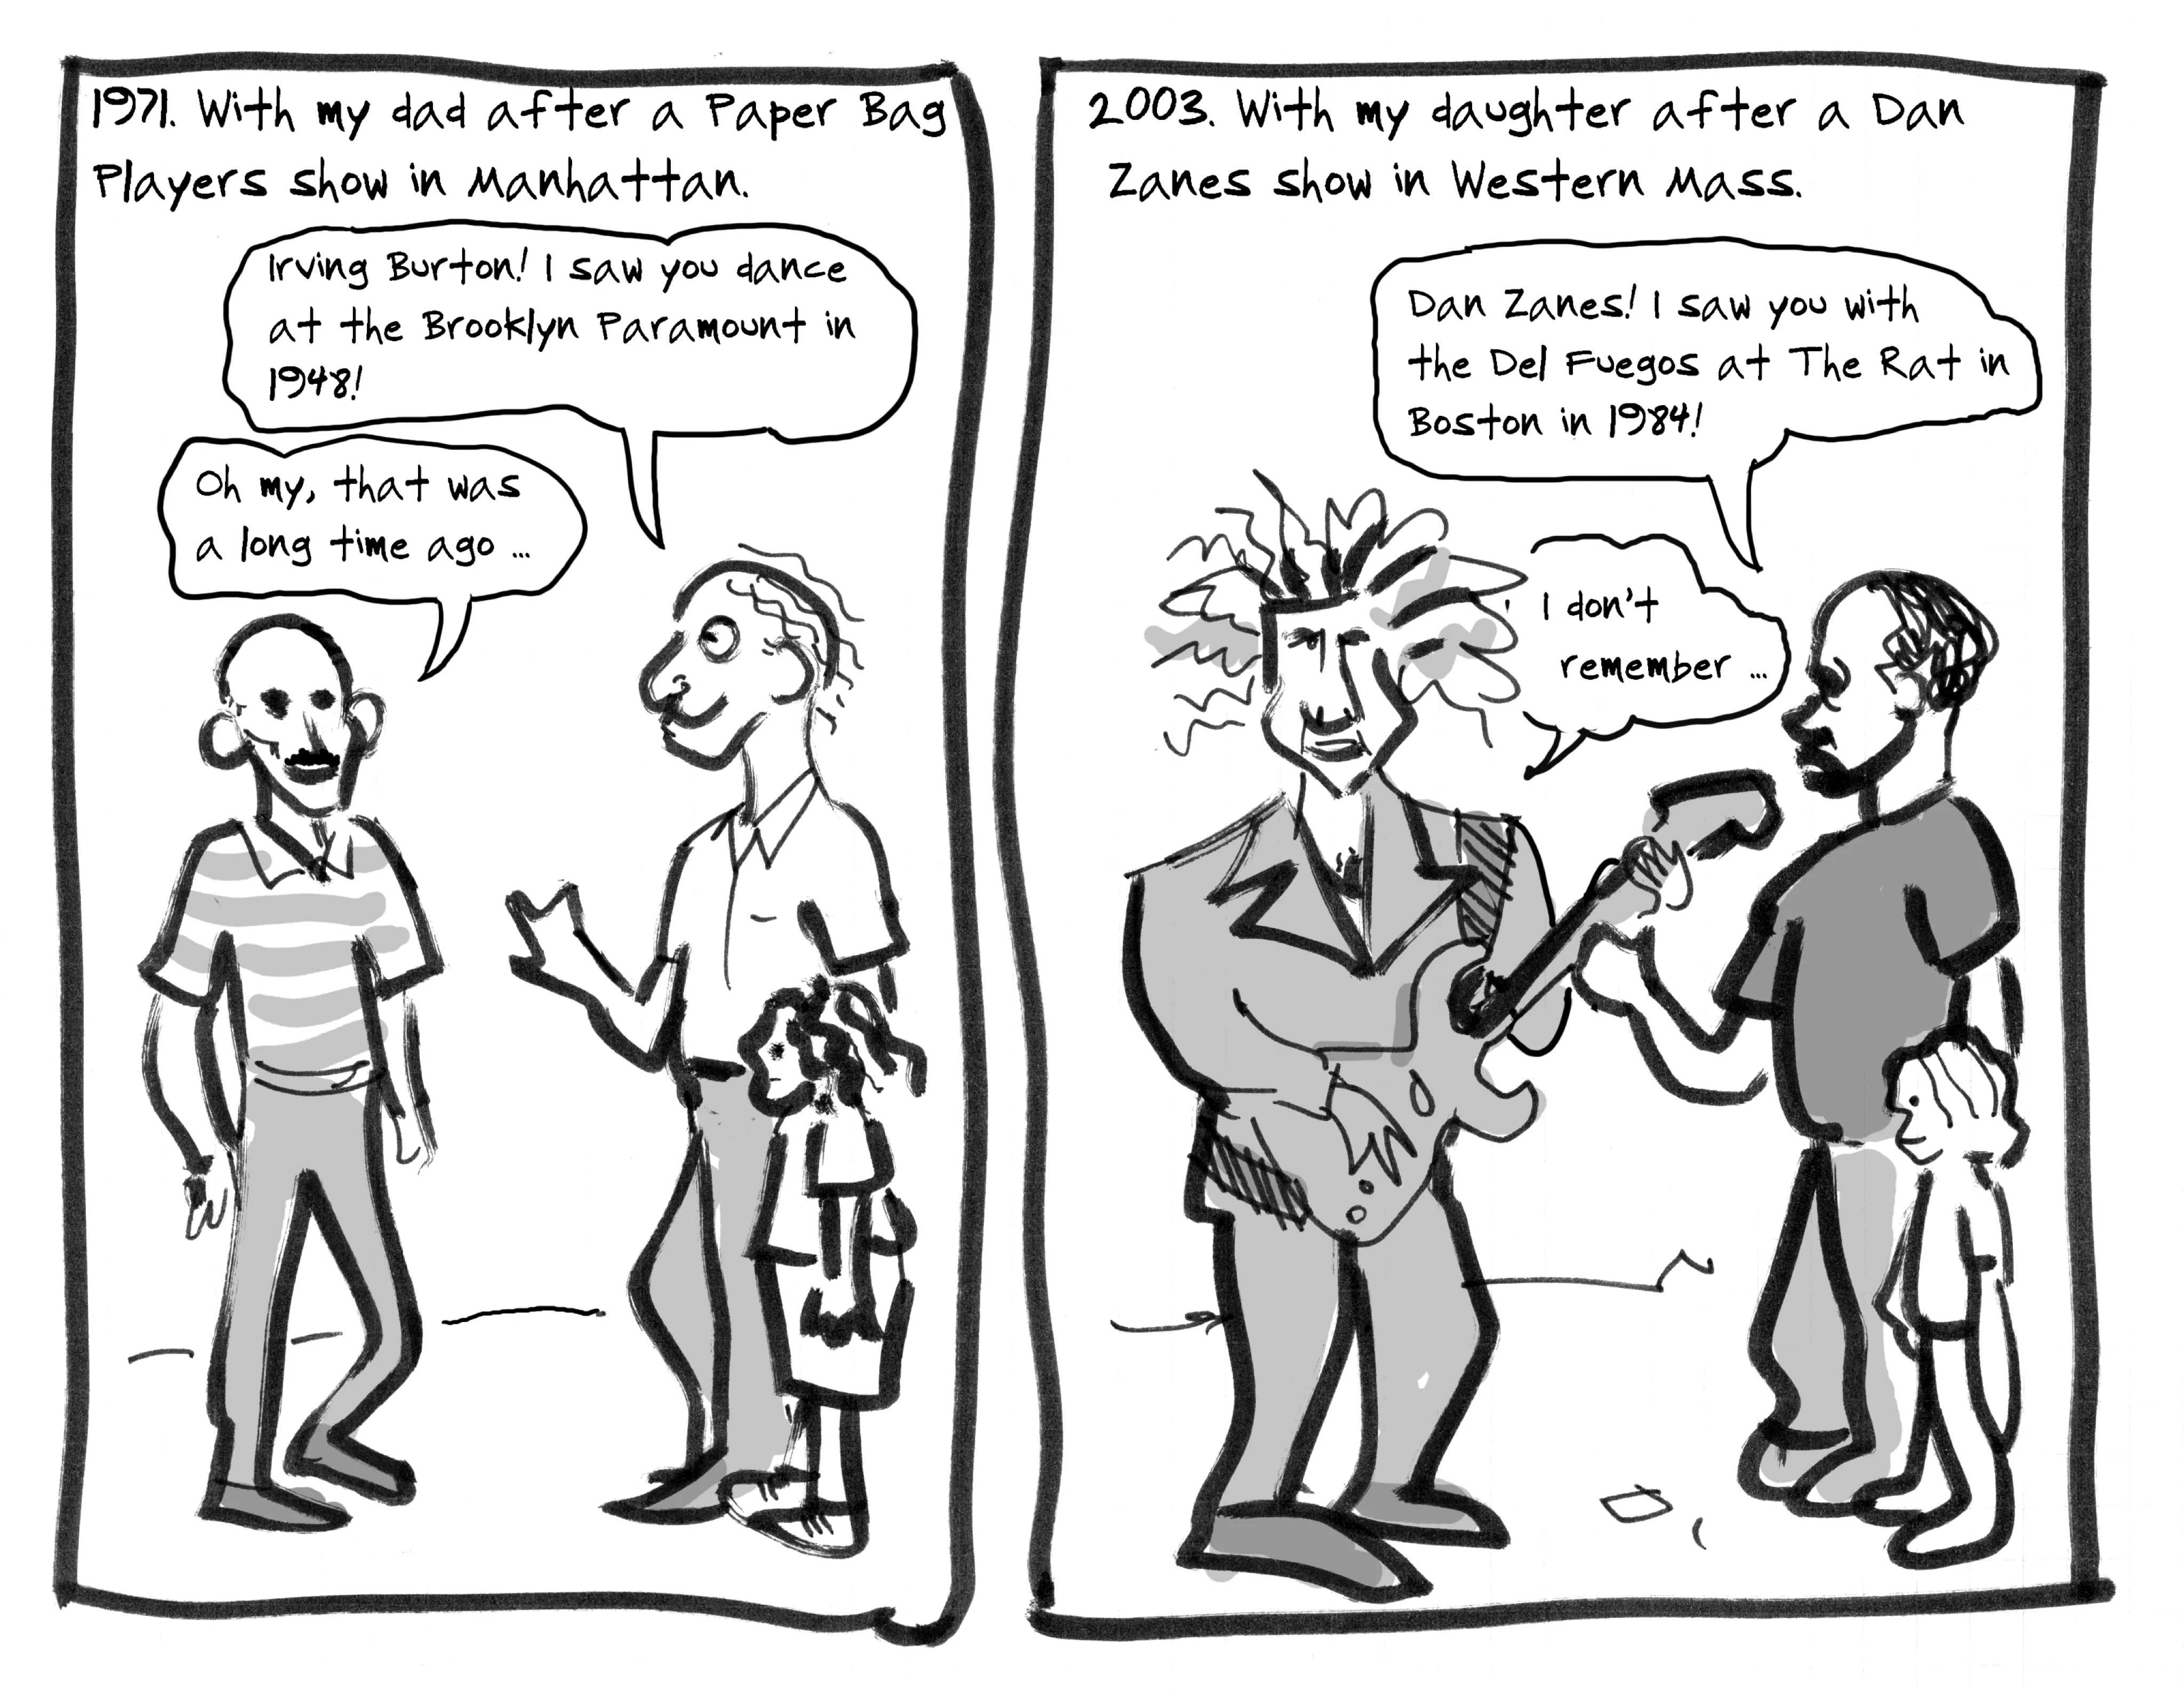 1971. With my dad after a Paper Bag
Players show in Manhattan.
Irving Burton! I saw you dance
at the Brooklyn Paramount in
1948!
Oh my, that was
a long time ago ...
2003. With my daughter after a Dan
Zanes show in Western Mass.
Dan Zanes! I saw you with
the Del Fuegos at The Rat in
Boston in 1984!
I don't
remember ...